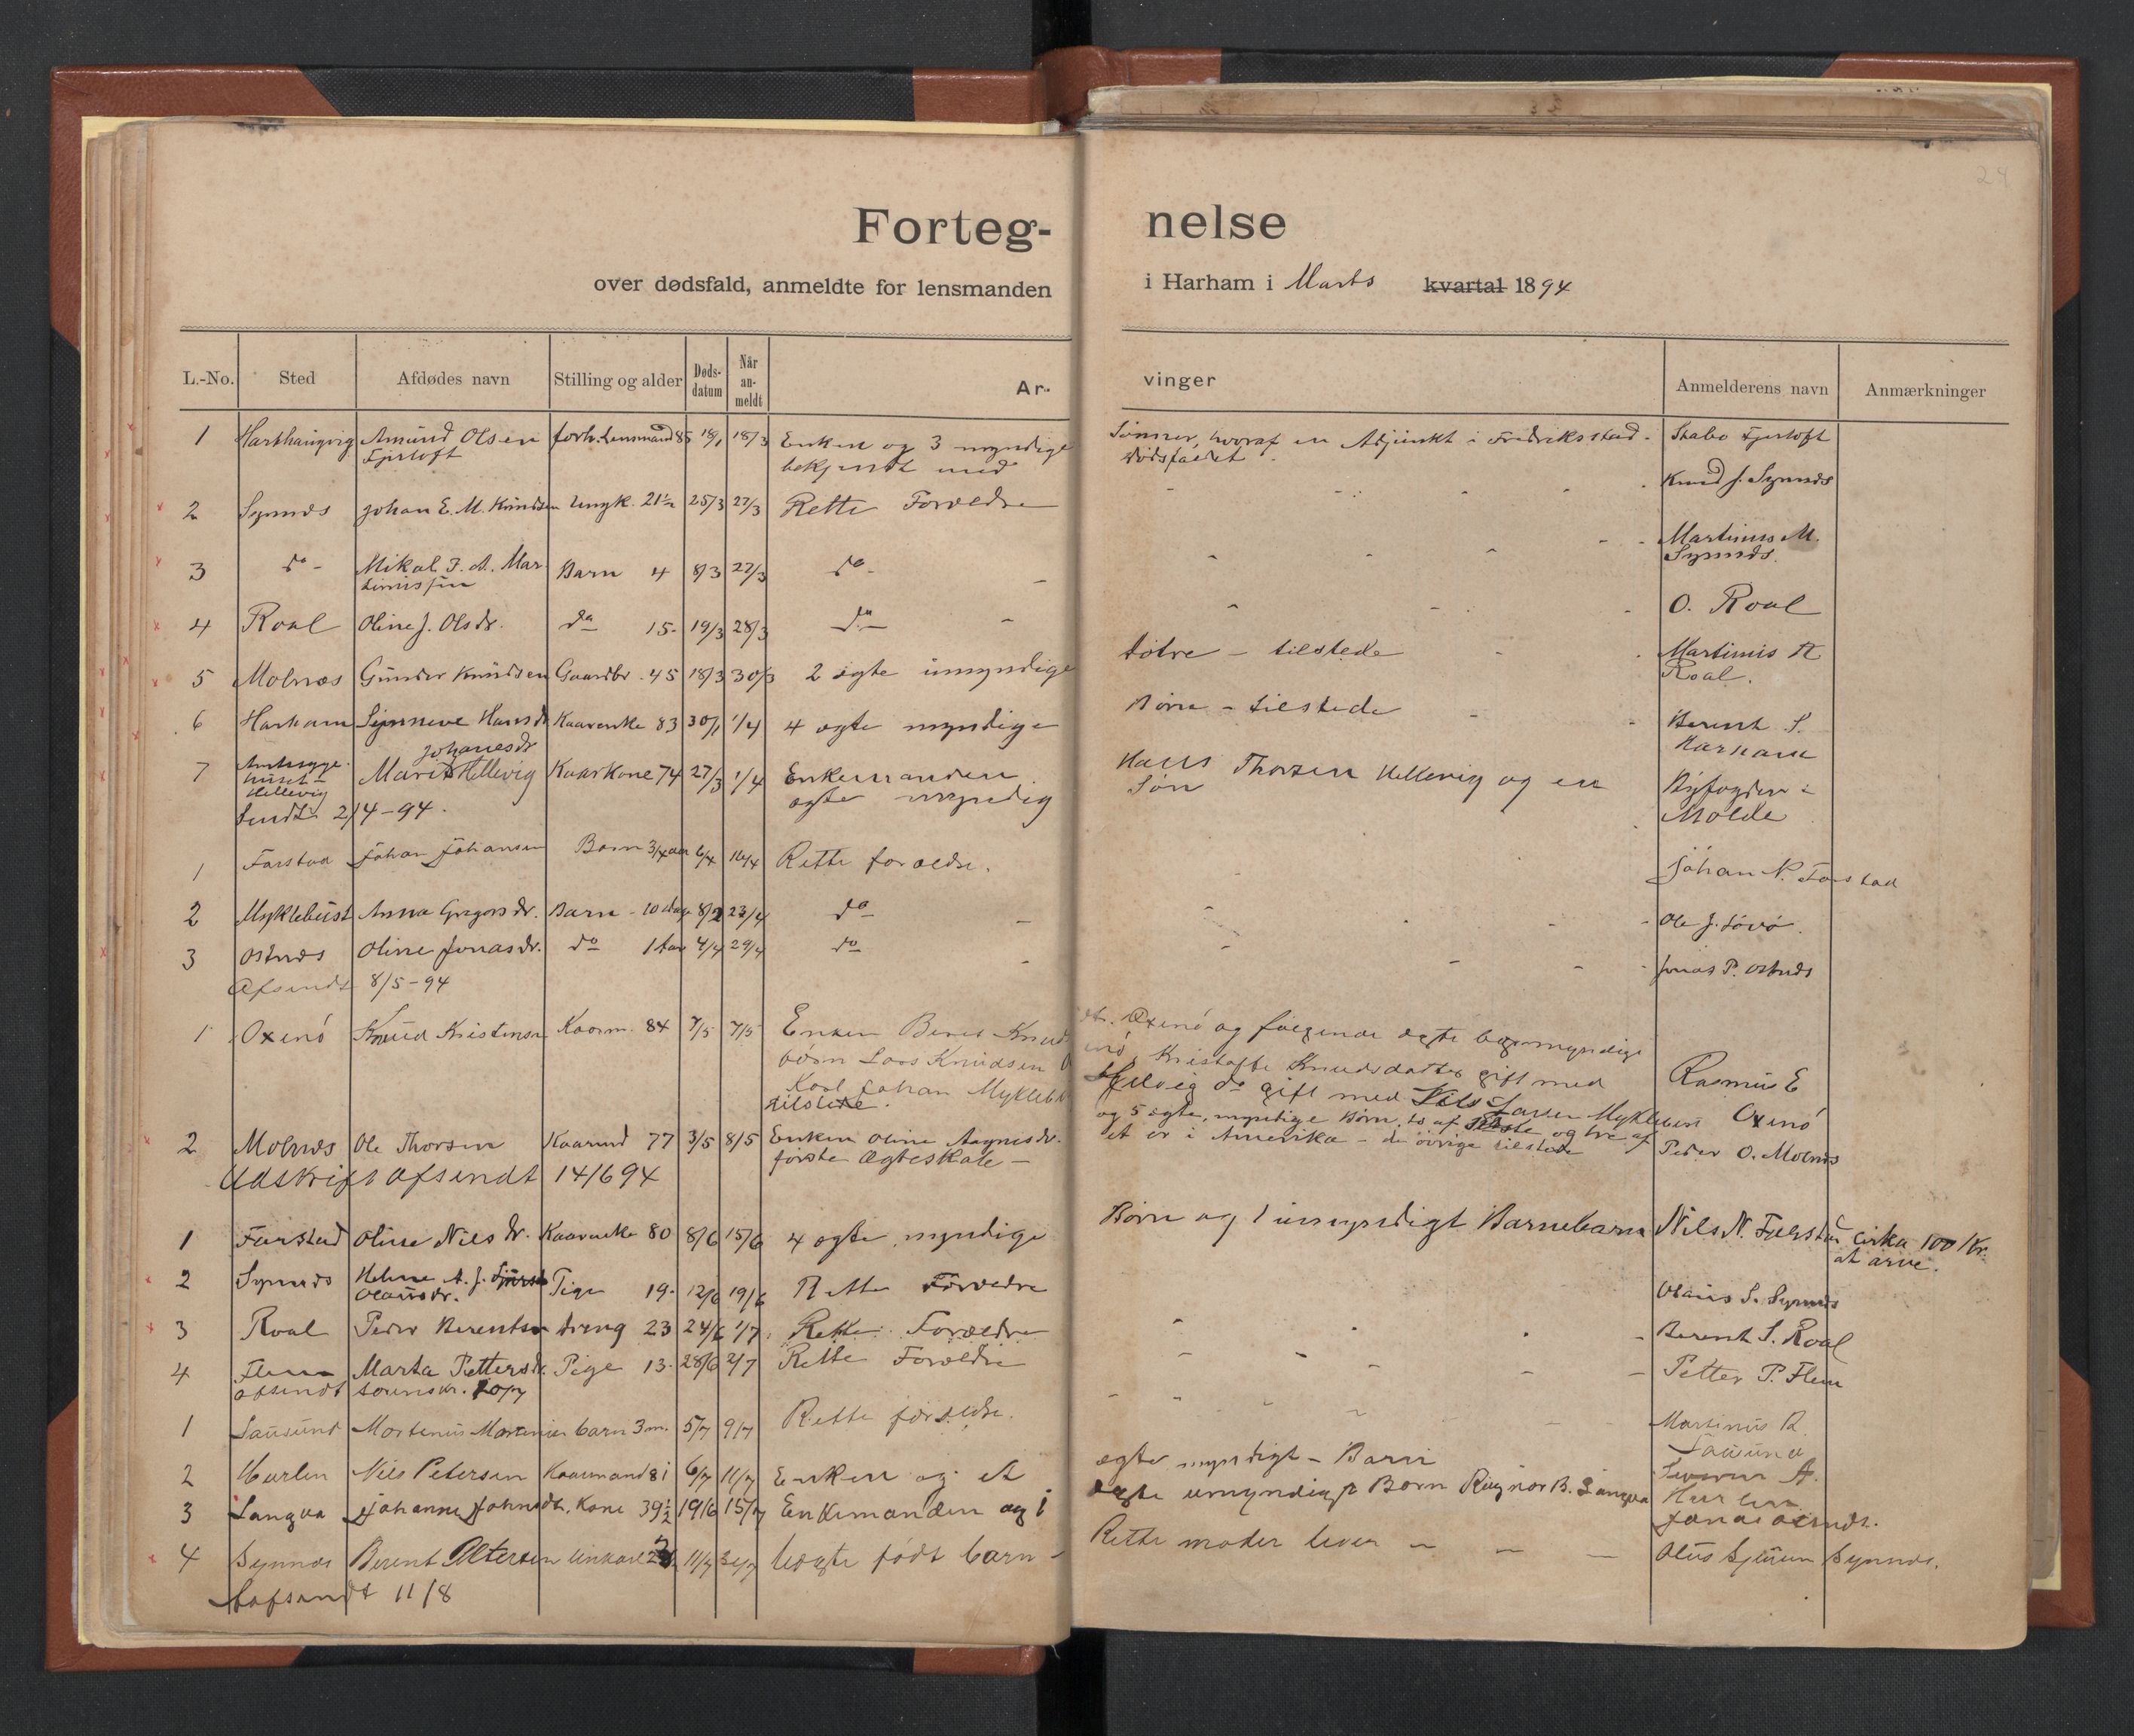 24
Forteg- nelse
over dødsfald, anmeldte for lensmanden i Harham i Marts kvartal 1894
L.-No. Sted Afdødes navn Stilling og alder Døds-datum Når an-meldt Ar- vinger Anmelderens navn Anmærkninger
1 Harhaugvig Amund Olsen forh. Lensmand 85 18/1 18/3 Enken og 3 myndige Sønner, hvoraf en Adjunkt i Fredriksstad - Stabo Fjertoft
Fjertoft bekjendt med dødsfaldet.
2 Synnæs Johan E. M. Knudsen Ungk. 21½ 25/3 27/3 Rette Forældre Knud J. Synnæs
3 do - Mikal J. A. Mar Barn 4 8/3 27/3 do - Martinus M.
tinussen Synnæs.
4 Roal Oline J. Olsdr. do 15- 19/3 28/3 do - O. Roal
5 Molnæs Gunder Knudsen Gaardbr. 45 18/3 30/3 2 ægte umyndige døtre - tilstede Martinus A
Roal.
6 Harham Synneve Hansdr Kaarenke 83 30/1 1/4 4 ægte myndige Børn - tilstede Berent S.
Harham
Johanesdr
7 Amtssyge- Marit Hellevig Kaarkone 74 27/3 1/4 Enkemanden Hans Thorsen Hellevig og en Byfogden i
huset - ægte myndig Søn Molde
Hellevig
Sendt 2/4-94.
1 Farstad Johan Johansen Barn 3/4 aar 6/4 16/4 Rette forældre. Johan N. Farstad
2 Myklebust Anna Gregorsdr. Barn - 10 dage 8/2 23/4 do Ole J. Søvø.
3 Østnæs Oline Jonasdr. do 1 Aar 4/4 29/4 do Jonas P. Østnæs
Afsendt 8/5-94
1 Oxenö Knud Kristensen Kaarm. 84 7/5 7/5 Enken Knud dtr. Oxenö og følgende ægte myndige
børn Lars Knudsen Oxenö, Kristofte Knudsdatter gift med Rasmus E
Karl Johan Myklebust do gift med Nils Larsen Myklebust Oxenö
tilstede.
2 Molnæs Ole Thorsen Kaarmd 77 3/5 8/5 Enken Oline Aagnesdr. og 5 ægte, myndige Børn, to af sidste og tre af Peder O. Molnæs
første Ægteskab - et er i Amerika - de øvrige tilstede
Udskrift afsendt 14/6 94
1 Farstad Oline Nilsdr. Kaarenke 80 8/6 15/6 4 ægte myndige Børn og 1 umyndigt Barnebarn Nils N. Farstad cirka 100 Kr.
at arve.
2 Synnæs Heline A. J. Pige 19- 12/6 19/6 Rette Forældre Olaus S. Synnæs
Olausdr.
3 Roal Peder Berentsen dreng 23 24/6 1/7 Rette Forældre Berent S. Roal
4 Flem Marta Pettersdr. Pige 13- 28/6 2/7 Rette Forældre Petter P. Flem
afsendt sorenskr.
1 Sausund Martinus Martinius barn 3 m. 5/7 9/7 Rette forældre. Martinus R.
Sausund
2 Hurlen Nils Petersen Kaarmand 81 6/7 11/7 Enken og et ægte myndigt - Barn Severin A.
Hurlen
3 Longva Johanne Johnsdtr. Kone 39½ 19/6 15/7 Enkemanden og 1 ægte umyndigt Barn Ragnar B. Longva Jonas Østnæs.
4 Synnæs Berent Petersen Unkarl 11/7 Uægte født barn - Rette moder lever Olus Sjursen Synnæs.
afsendt 11/8